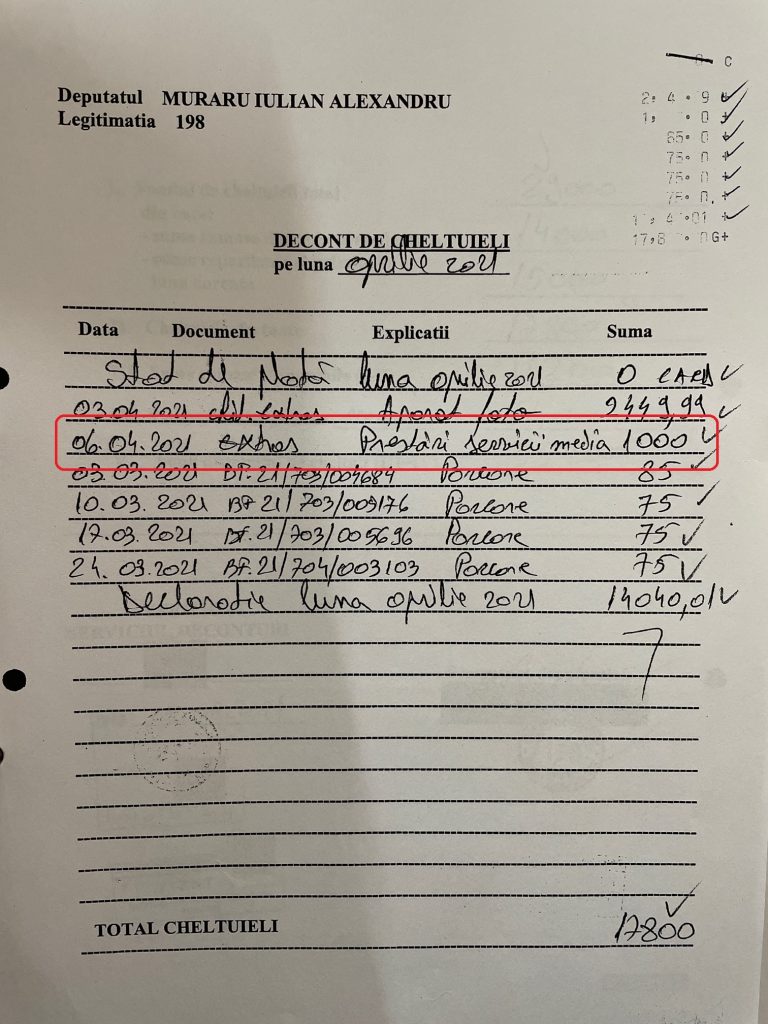 Deputatul MURARU IULIAN ALEXANDRU
Legitimatia 198
DECONT DE CHELTUIELI
pe luna aprilie 2021
Data Document Explicatii Suma
Stat de plată luna aprilie 2021 0
03.04.2021 extras Aparat foto 2449,99
06.04.2021 extras Prestări servicii media 1000
03.03.2021 BF.21/703/004684 Parcare 85
10.03.2021 BF 21/703/009176 Parcare 75
17.03.2021 BF.21/703/005696 Parcare 75
24.03.2021 BF.21/704/0003103 Parcare 75
Declaratie luna aprilie 2021 14040,01
TOTAL CHELTUIELI 17800